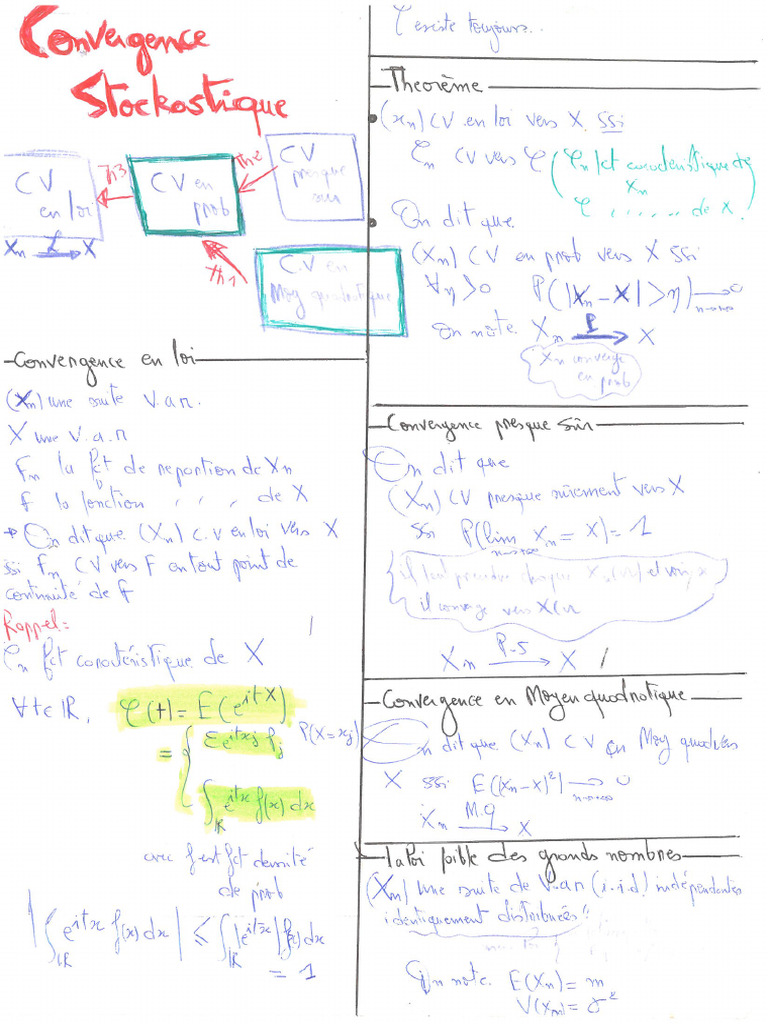 Convergence
Stockastique
CV
en loi
Xn →L X
Th3
CV en
prob
Th2
CV
presque
sur
Th1
C.V en
Moy quadratique
Convergence en loi
(Xn) une suite v.a.r.
X une v.a.r
Fn la fct de repartion de Xn
F la fonction , , , de X
On dit que (Xn) C.V en loi vers X
ssi Fn CV vers F en tout point de
continuité de F
Rappel:
φn fct caractéristique de X
∀t∈IR, φ(t) = E(e^{itX})
= { Σe^{itxj} Pj P(X=xj)
∫IR e^{itx} f(x) dx
avec f est fct densité
de prob
|∫IR e^{itx} f(x) dx| ≤ ∫IR |e^{itx}| f(x) dx
= 1
φ existe toujours..
Theorème
(xn) CV en loi vers X ssi
φn CV vers φ (φn fct caractéristique de
Xn
φ , , , , , , de X)
On dit que
(Xn) CV en prob vers X ssi
∀η>0 P(|Xn-X|>η) → 0
n→+∞
On note Xn →P X
Xn converge
en prob
Convergence presque sûr
On dit que
(Xn) CV presque sûrement vers X
ssi P(lim Xn = X) = 1
n→+∞
il faut prendre chaque
il converge vers X
Xn →P.S X
Convergence en Moyen quadratique
On dit que (Xn) CV en Moy quad vers
X ssi E((Xn-X)²) → 0
n→+∞
Xn →M.q X
la loi faible des grands nombres
(Xn) une suite de v.a.r (i.i.d) indépendantes
identiquement distribuées
On note E(Xn) = m
V(Xn) = σ²